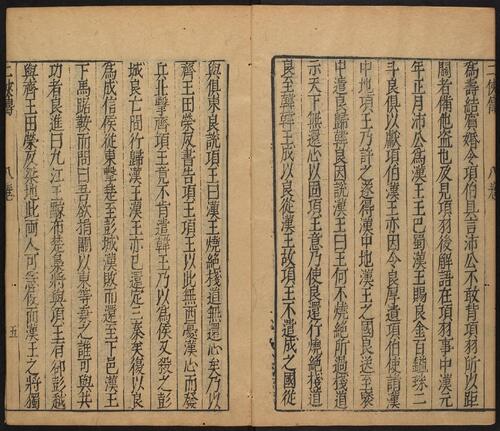 為壽結賓婚令項伯具言沛公不敢背項羽所以距
關者備他盜也及見項羽後解語在項羽事中漢元
年正月沛公為漢王王巴蜀漢王賜良金百鎰珠二
斗良俱以獻項伯漢王亦因令良厚遺項伯使請漢
中地項王乃許之遂得漢中地漢王之國良送至褒
中遣良歸韓良因說漢王曰王何不燒絕所過棧道
示天下無還心以固項王意乃使良還行燒絕棧道
良至韓韓王成以良從漢王故項王不遣成之國從
與俱東良說項王曰漢王燒絕棧道無還心矣乃以
齊王田榮反書告項王項王以此無西憂漢心而發
兵北擊齊項王竟不肯遣韓王乃以為侯又殺之彭
城良亡間行歸漢王漢王亦已還定三秦矣復以良
為成信侯從東擊楚至彭城漢敗而還至下邑漢王
下馬踞鞍而問曰吾欲捐關以東等棄之誰可與共
功者良進曰九江王黥布楚梟將與項王有郤彭越
與齊王田榮反梁地此兩人可急使而漢王之將獨
八卷
五